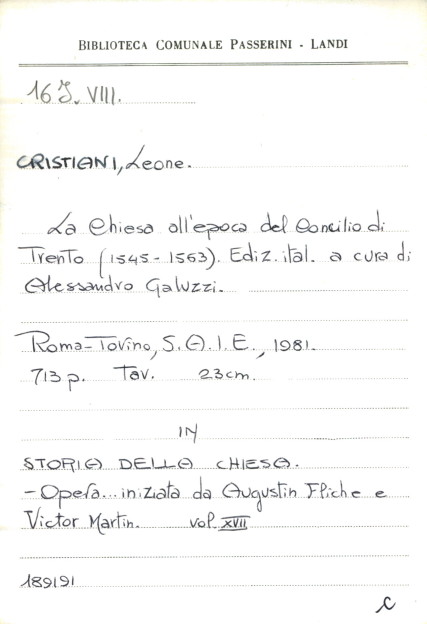 BIBLIOTECA COMUNALE PASSERINI - LANDI
16 J. VIII.
CRISTIANI, Leone.
La Chiesa all'epoca del Concilio di
Trento (1545-1563). Ediz. ital. a cura di
Alessandro Galuzzi.
Roma-Torino, S.A.I.E., 1981.
713 p. Tav. 23cm.
IN
STORIA DELLA CHIESA.
- Opera... iniziata da Augustin Fliche e
Victor Martin. vol. XVII
189191
C